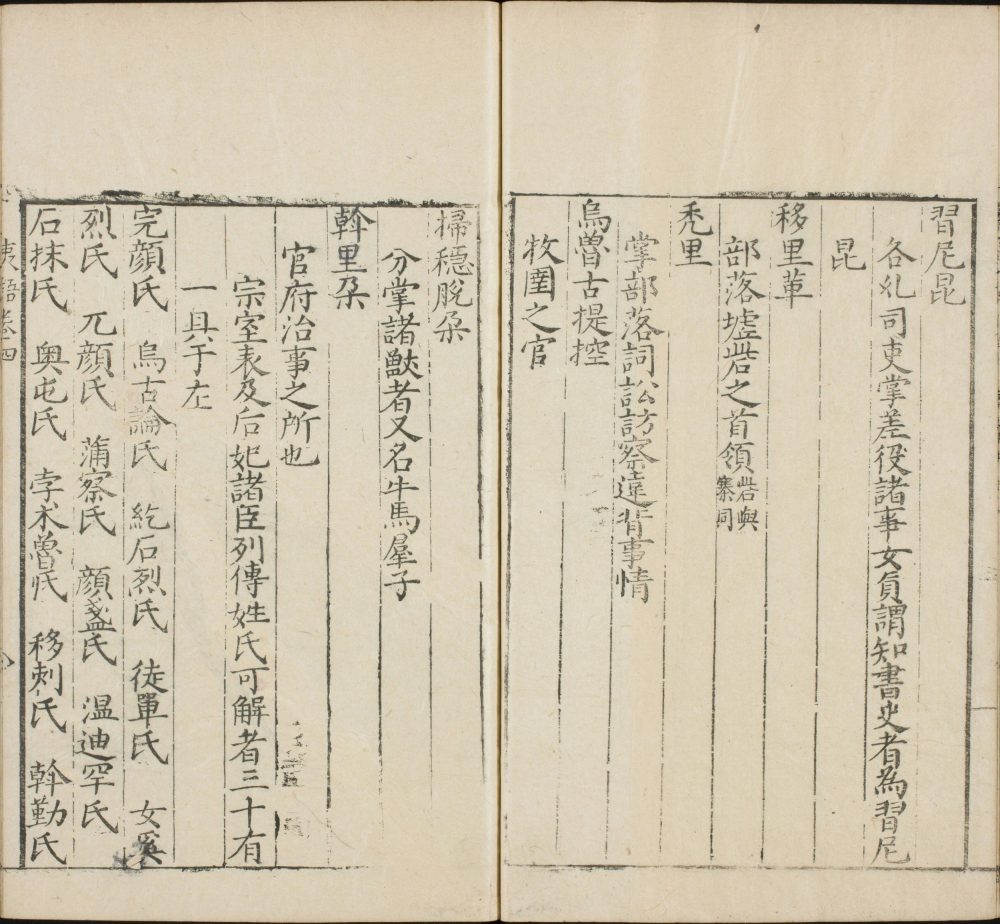 習尼昆
各乣司吏掌差役諸事女貟謂知書史者為習尼
昆
移里菫
部落墟砦之首領砦與寨同
禿里
掌部落詞訟訪察違背事情
烏魯古提控
牧圉之官
掃穩脫朶
分掌諸獸者又名牛馬羣子
斡里朶
官府治事之所也
宗室表及后妃諸臣列傳姓氏可解者三十有
一具于左
完顏氏　烏古論氏　紇石烈氏　徒單氏　女奚
烈氏　兀顏氏　蒲察氏　顏盞氏　温迪罕氏
石抹氏　奥屯氏　孛术魯氏　移剌氏　斡勤氏
夷語卷四